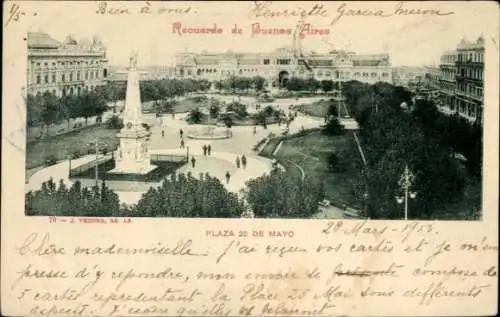 4/5 Bien à vous. Henriette Garcia Meron
Recuerdo de Buenos Aires
70 - J. PEUSER, BS. AS.
PLAZA 25 DE MAYO
28 Mars - 1903
Chère mademoiselle. j'ai reçu vos cartes et je m'em
presse d'y répondre, mon envoie se compose de
5 cartes representant la Place 25 Mai sous différents
aspects. J'espère qu'elles